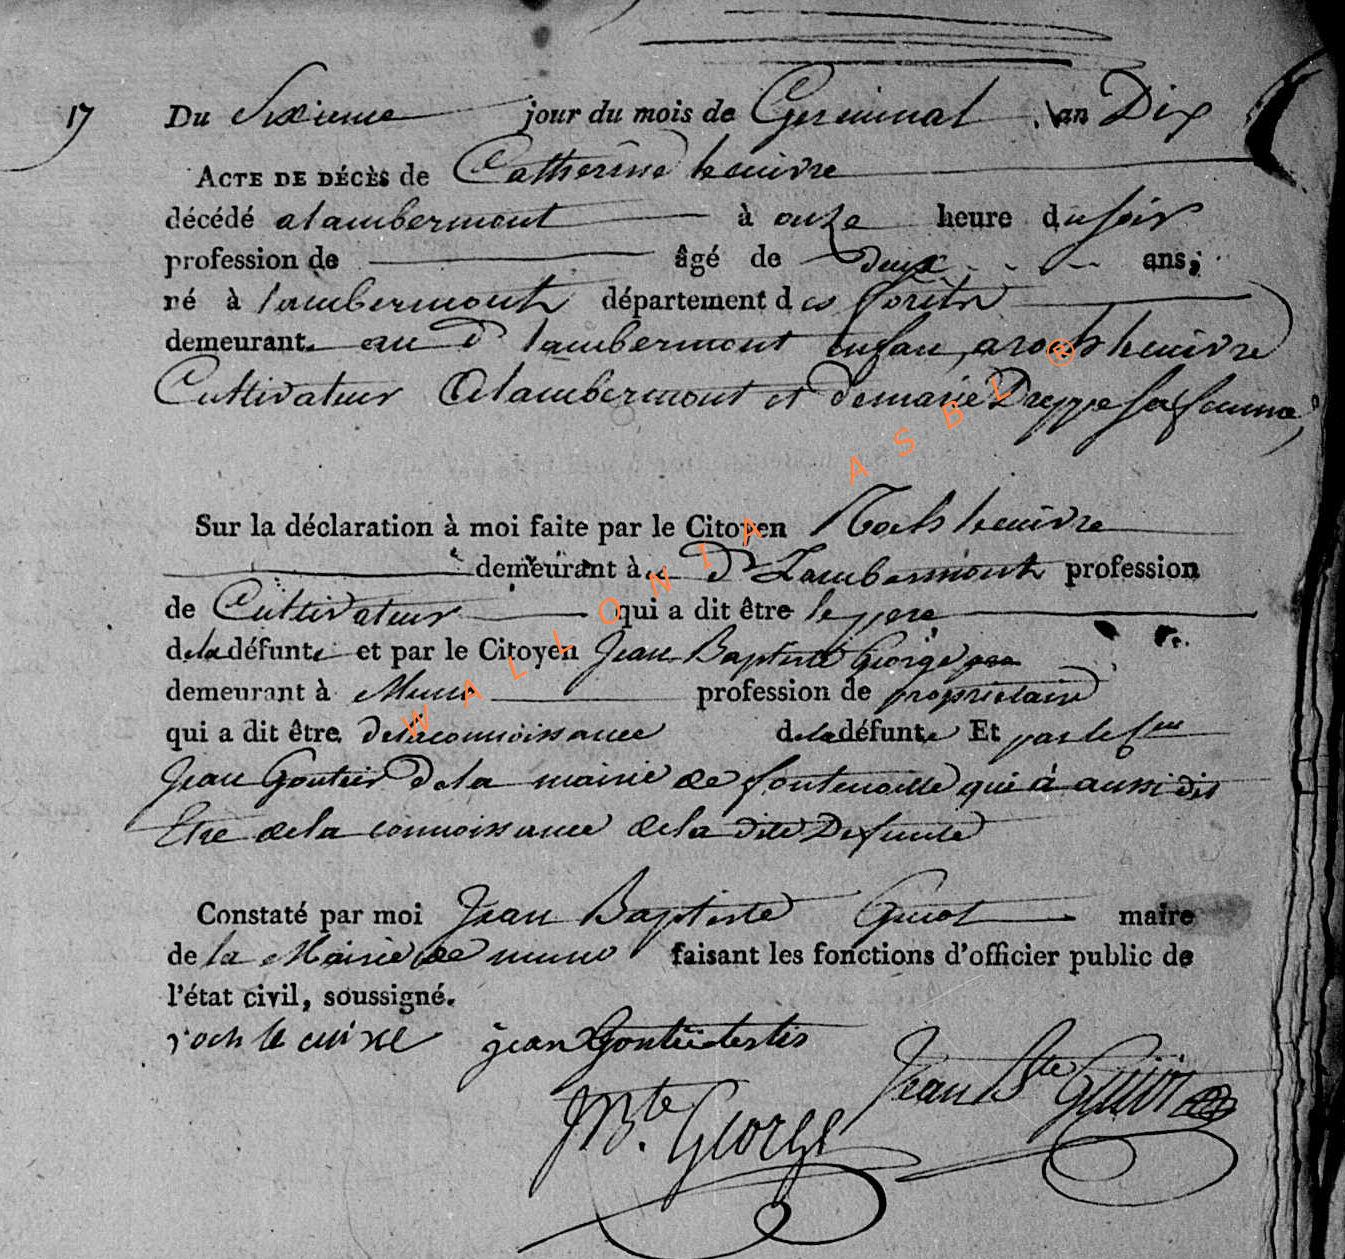 17 Du Sixieme jour du mois de Germinal an Dix
ACTE DE DÉCÈS de Catherine lecuivre
décédé a lambermont à onze heure du soir
profession de âgé de deux ans,
né à lambermont département des forêts
demeurant au d lambermont enfan a roch lecuivre
Cultivateur A lambermont et de marie Dreppe sa femme
Sur la déclaration à moi faite par le Citoyen Roch lecuivre
demeurant à d Lambermont profession
de Cultivateur qui a dit être le pere
de la défunte et par le Citoyen Jean Baptiste George
demeurant à Muno profession de propriétaire
qui a dit être de la connoissance de la défunte Et par le
Jean Goutier de la mairie de fontenoille qui à aussi dit
Etre de la connoissance de la dite Defunte
Constaté par moi Jean Baptiste Guiot maire
de la Mairie de muno faisant les fonctions d'officier public de
l'état civil, soussigné.
roch le cuivre jean Goutié testis
Jean Bte Guiot
J Bte. George
WALLONIA ASBL ®